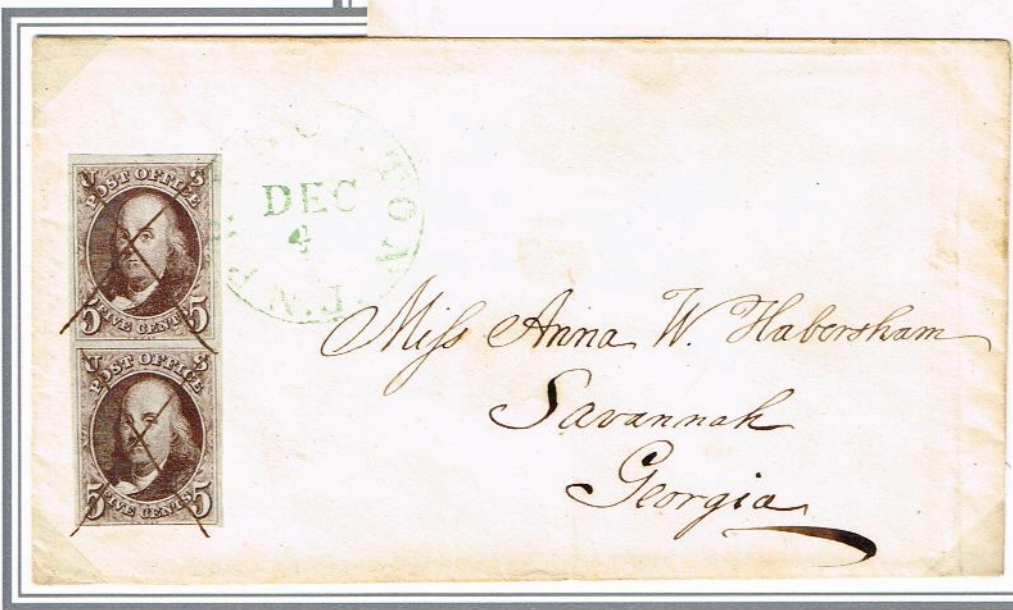 U S
POST OFFICE
5 FIVE CENTS 5
U S
POST OFFICE
5 FIVE CENTS 5
DEC
4
N.J.
Miss Anna W. Habersham
Savannah
Georgia